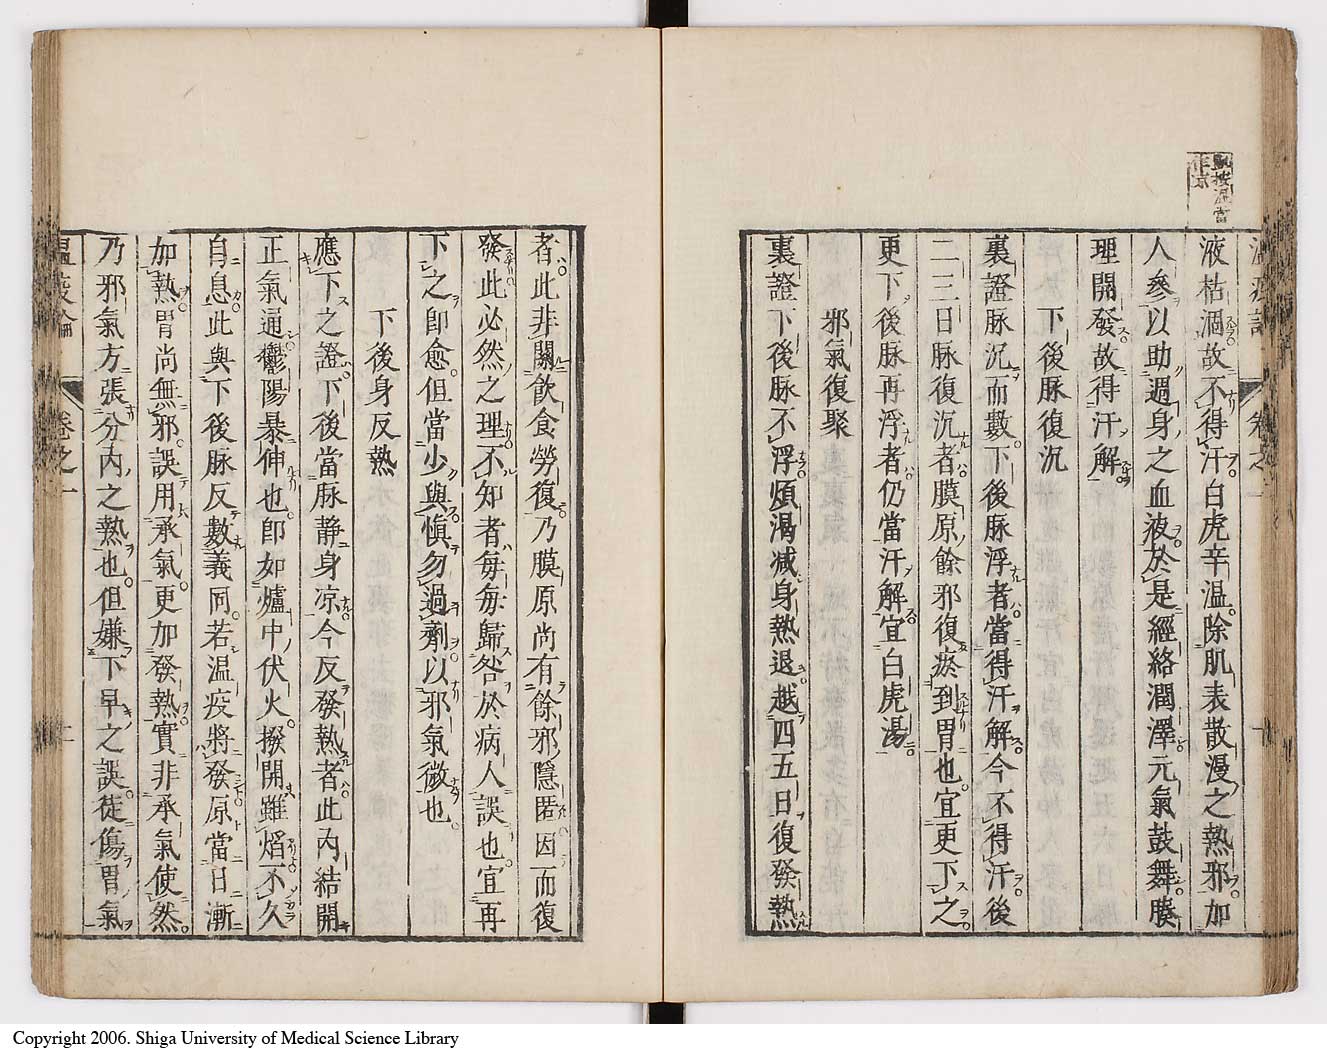 按溫當
作凉
液枯涸故不得汗白虎辛溫除肌表散漫之熱邪加
人參以助過身之血液於是經絡潤澤元氣鼓舞腠
理開發故得汗解
下後脉復沉
裏證脉沉而數下後脉浮者當得汗解今不得汗後
二三日脉復沉者膜原餘邪復瘀到胃也宜更下之
更下後脉再浮者仍當汗解宜白虎湯
邪氣復聚
裏證下後脉不浮煩渴减身熱退越四五日復發熱
者此非關飲食勞復乃膜原尚有餘邪隱匿因而復
發此必然之理不知者每每歸咎於病人誤也宜再
下之卽愈但當少與愼勿過劑以邪氣微也
下後身反熱
應下之證下後當脉静身凉今反發熱者此內結開
正氣通鬱陽暴伸也卽如爐中伏火撥開雖焰不久
自息此與下後脉反數義同若温疫將發原當日漸
加熱胃尚無邪誤用承氣更加發熱實非承氣使然
乃邪氣方張分內之熱也但嫌下早之誤徒傷胃氣
溫疫論 卷之一
Copyright 2006. Shiga University of Medical Science Library